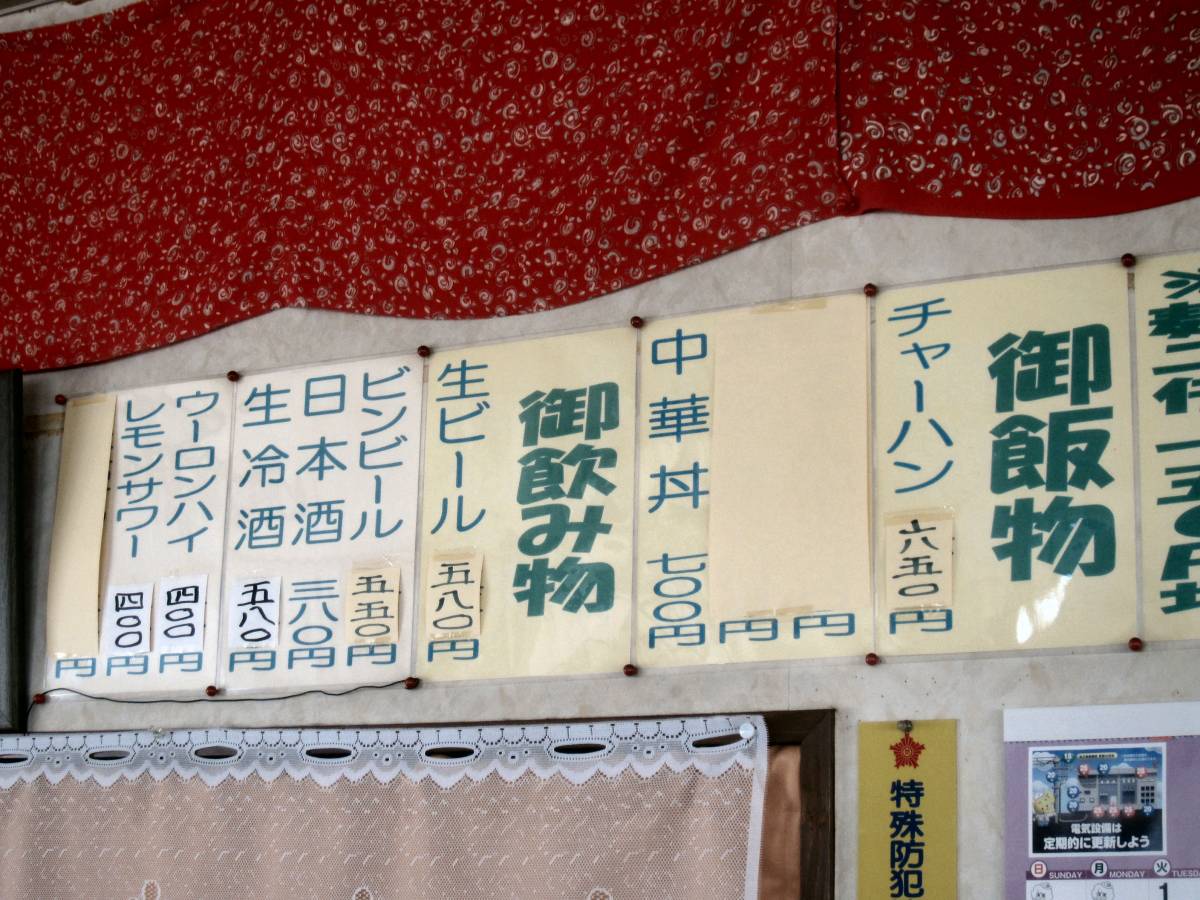 御飯物
チャーハン 六五〇円
円
円
中華丼 七〇〇円
御飲み物
生ビール 五八〇円
ビンビール 五五〇円
日本酒 三八〇円
生冷酒 五八〇円
ウーロンハイ 四〇〇円
レモンサワー 四〇〇円
円
特殊防犯
電気設備は
定期的に更新しよう
日 SUNDAY 月 MONDAY 火 TUESDA
1